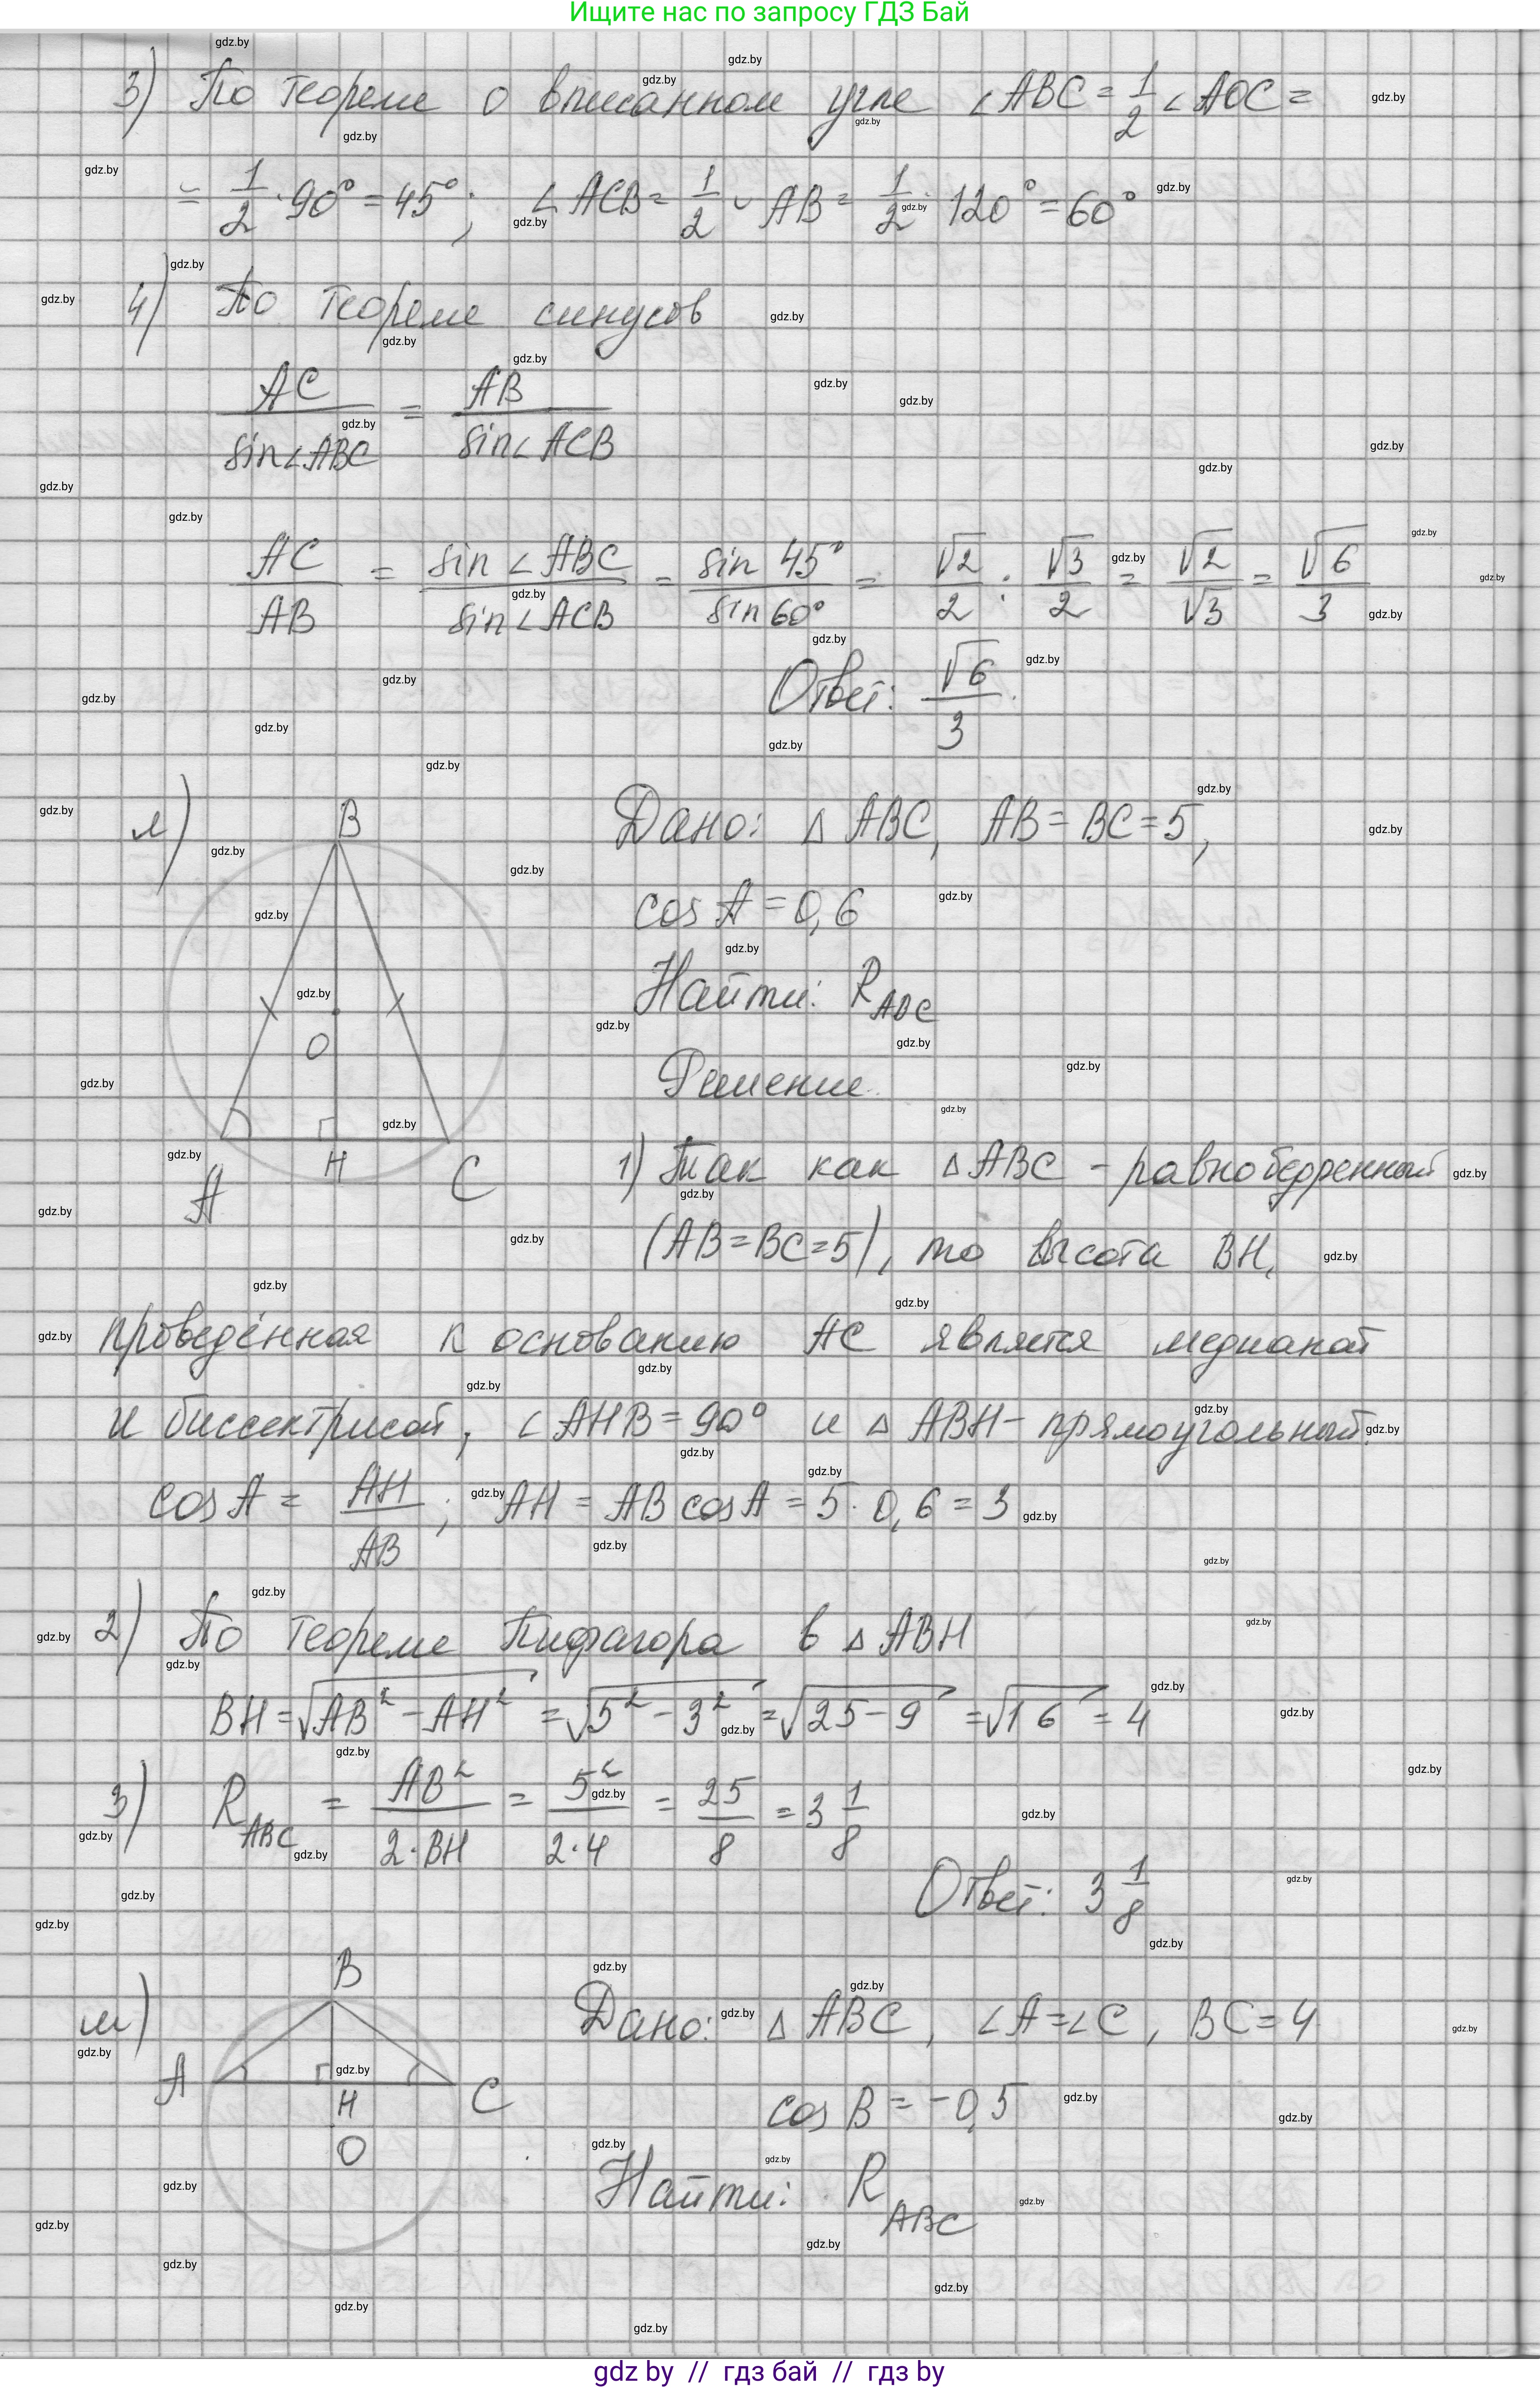 Ищите нас по запросу ГДЗ Бай
3) По теореме о вписанном угле ∠ABC = 1/2 ∠AOC =
= 1/2 · 90° = 45°; ∠ACB = 1/2 ◡ AB = 1/2 · 120° = 60°
4) По теореме синусов
AC / sin∠ABC = AB / sin∠ACB
AC / AB = sin∠ABC / sin∠ACB = sin 45° / sin 60° = √2/2 : √3/2 = √2/√3 = √6/3
Ответ: √6/3.
л)
B
O
A
H
C
Дано: △ ABC, AB = BC = 5,
cos A = 0,6
Найти: R ABC
Решение.
1) Так как △ABC - равнобедренный
(AB = BC = 5), то высота BH,
проведённая к основанию AC является медианой
и биссектрисой, ∠AHB = 90° и △ ABH - прямоугольный.
cos A = AH / AB; AH = AB cos A = 5 · 0,6 = 3
2) По теореме Пифагора в △ABH
BH = √AB² - AH² = √5² - 3² = √25 - 9 = √16 = 4
3) R ABC = AB² / 2·BH = 5² / 2·4 = 25/8 = 3 1/8
Ответ: 3 1/8
м)
B
A
H
C
O
Дано: △ ABC, ∠A = ∠C, BC = 4
cos B = -0,5
Найти: R ABC
gdz by // гдз бай // гдз by